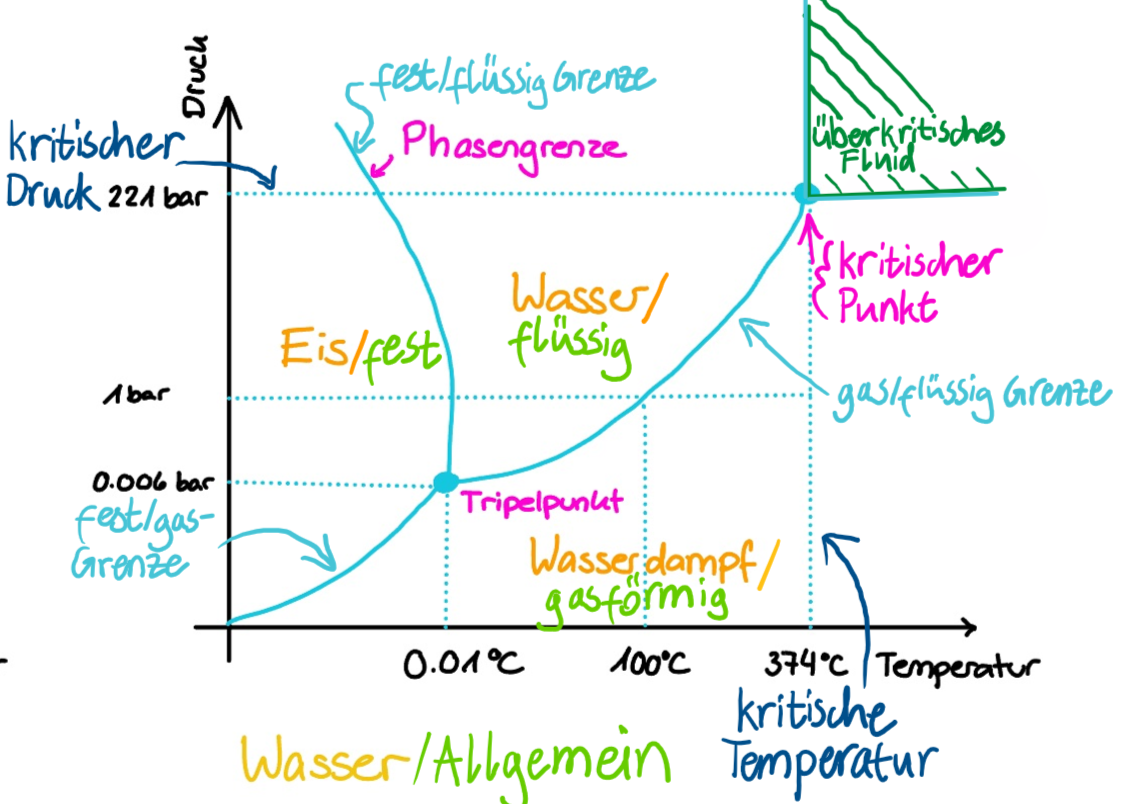 Druck
fest/flüssig Grenze
Phasengrenze
kritischer
Druck
221 bar
überkritisches
Fluid
kritischer
Punkt
Wasser/
flüssig
Eis/fest
1 bar
gas/flüssig Grenze
0.006 bar
Tripelpunkt
fest/gas-
Grenze
Wasserdampf/
gasförmig
0.01°C
100°C
374°C
Temperatur
kritische
Temperatur
Wasser/Allgemein